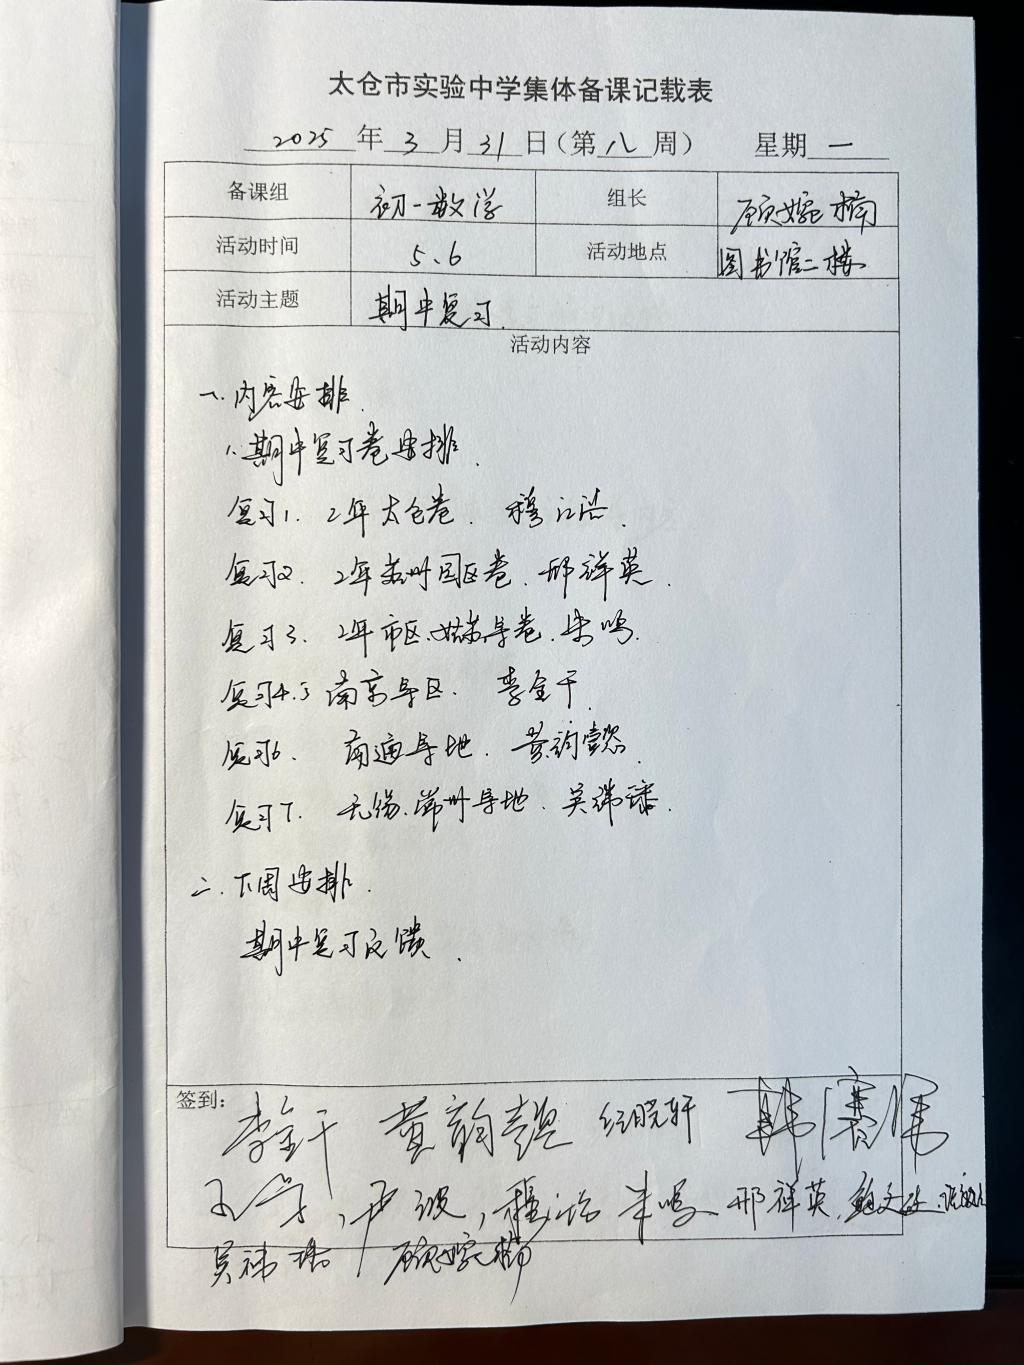 太仓市实验中学集体备课记载表
2025 年 3 月 31 日（第 八 周） 星期 一
备课组 初一数学 组长 顾婉楠
活动时间 5、6 活动地点 图书馆二楼
活动主题 期中复习.
活动内容
一.内容安排.
1.期中复习卷安排.
复习1. 2年太仓卷. 穆.
复习2. 2年苏州园区卷. 邢祥英.
复习3. 2年市区.姑苏等卷. 朱鸣.
复习4.5 南京各区. 李金干.
复习6. 南通各地. 黄韵懿.
复习7. 无锡.常州各地. 吴.
二.下周安排.
期中复习反馈.
签到:
李金干 黄韵懿 晓轩 韩
尹, 穆 朱鸣 邢祥英.
吴 顾婉楠